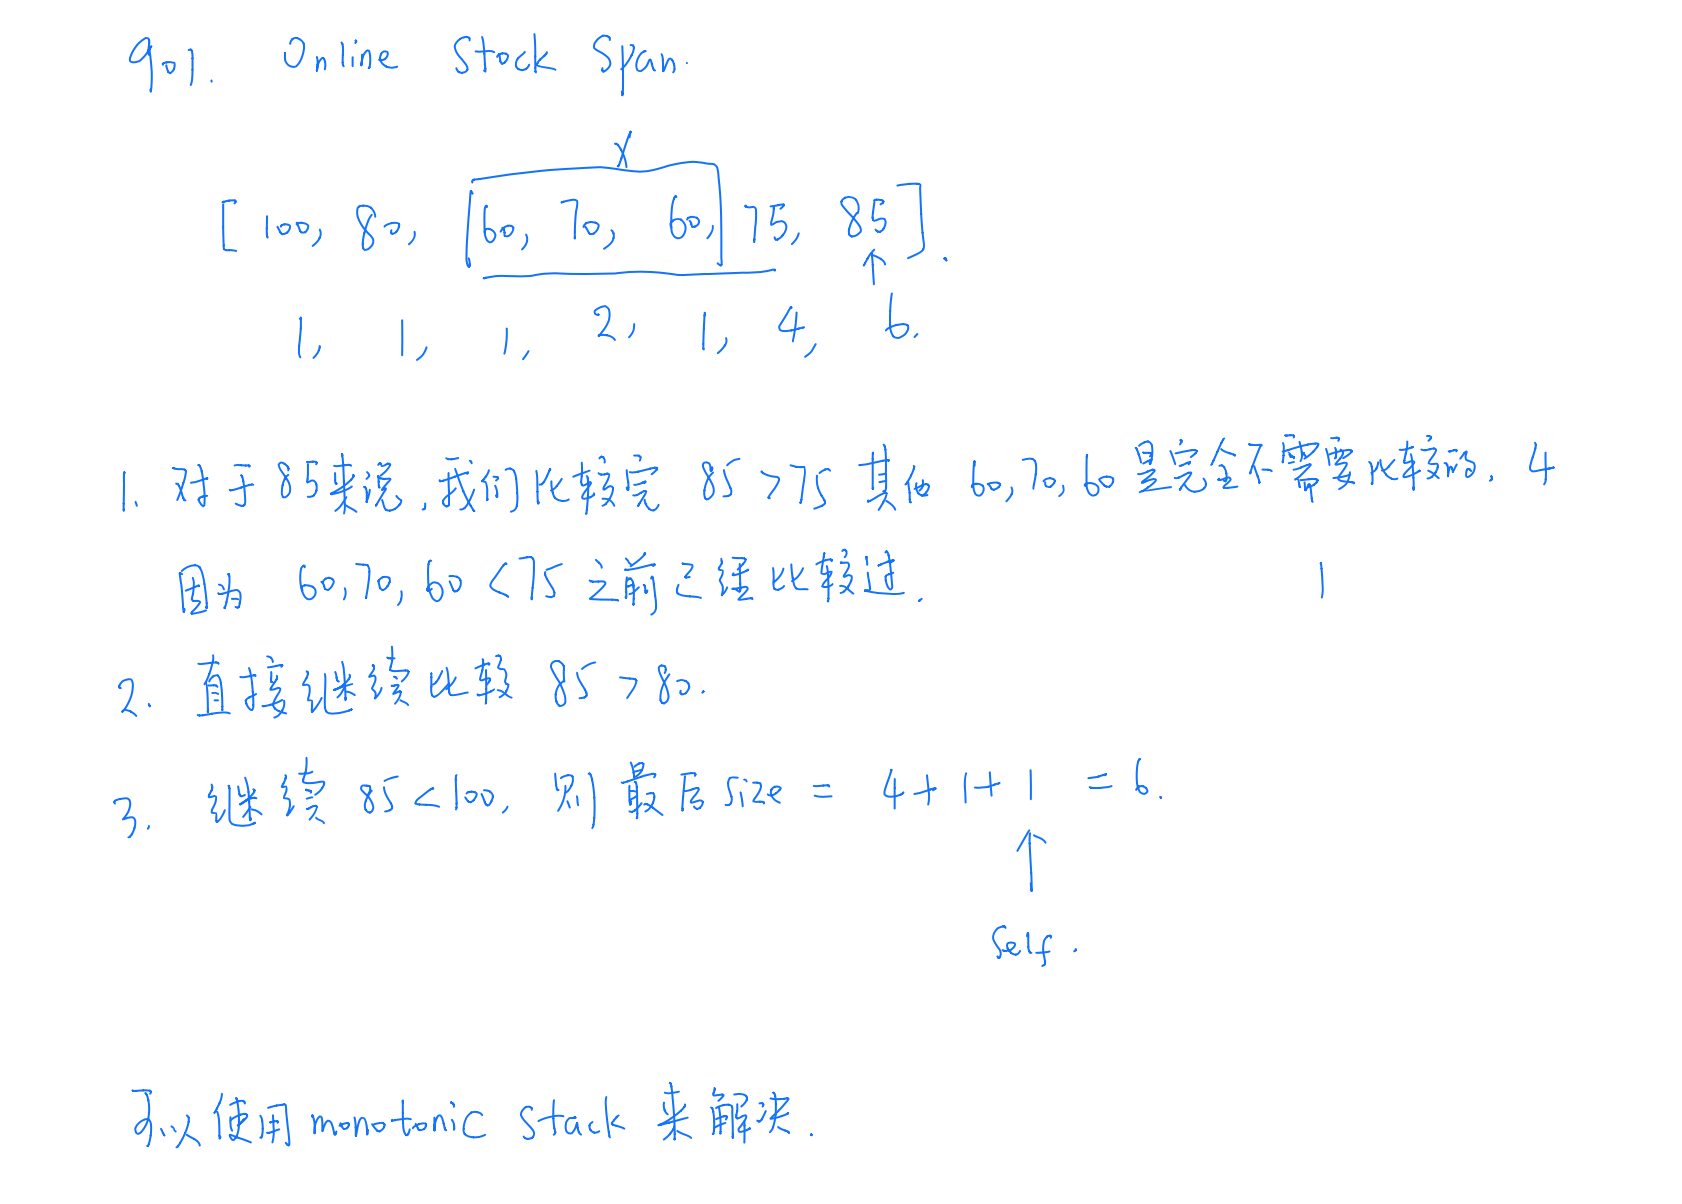 901. Online Stock Span.
X
[ 100, 80, [60, 70, 60,] 75, 85 ].
↑
1, 1, 1, 2, 1, 4, 6.
1. 对于85来说,我们比较完 85 >75 其他 60,70,60 是完全不需要比较的. 4
因为 60,70,60 <75 之前已经比较过. 1
2. 直接继续比较 85 > 80.
3. 继续 85<100, 则最后size = 4+1+1 = 6.
↑
Self.
可以使用 monotonic stack 来解决.